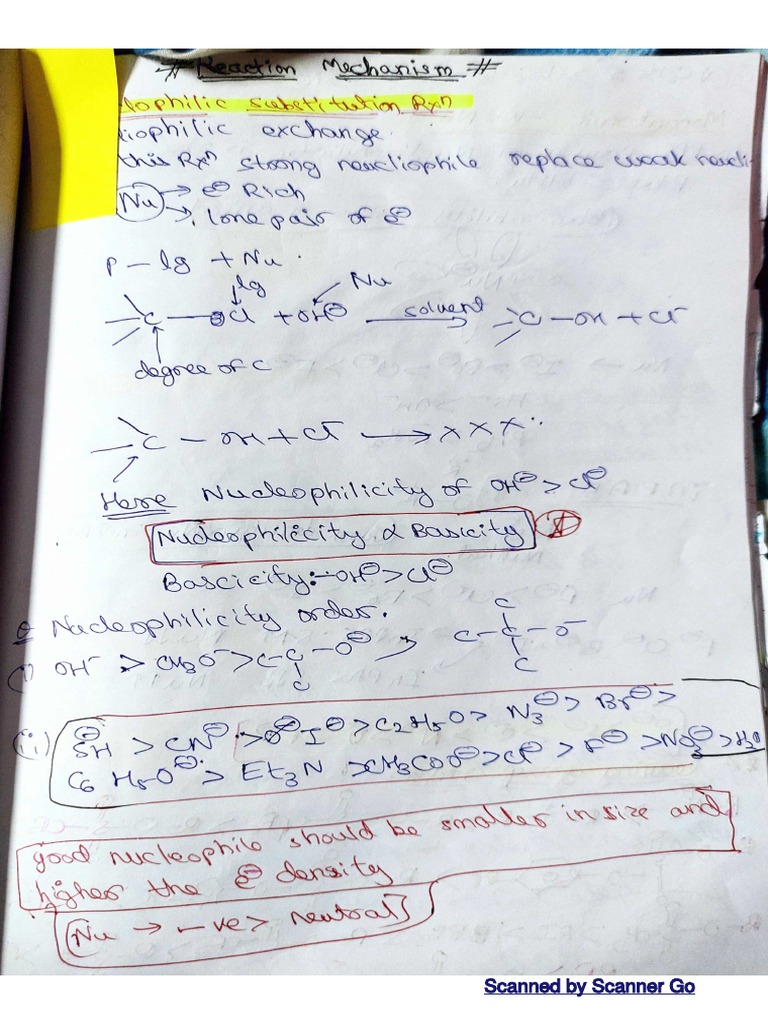 # Reaction Mechanism #
lophilic substitution Rxn
liophilic exchange.
this Rxn strong neucliophile replace weak neucli-
Nu → e⊖ Rich
→ lone pair of e⊖
P – lg + Nu.
lg Nu
C – Cl + OH⊖ solvent → C – OH + Cl⁻
degree of C
C – OH + Cl⁻ → X X X
Here Nucleophilicity of OH⊖ > Cl⊖
Nucleophilicity α Basicity
Bascicity:- OH⊖ > Cl⊖
Q Nucleophilicity order.
C
(i) OH⁻ > CH3O⁻ > C – C – O⊖ → C – C – O⁻
C C
(ii) SH⊖ > CN⊖ > I⊖ > C2H5O > N3⊖ > Br⊖ >
C6H5O⊖ > Et3N > CH3COO⊖ > Cl⊖ > F⊖ > NO3⊖ > H2O
good nucleophile should be smaller in size and
higher the e⊖ density
Nu → -ve > neutral
Scanned by Scanner Go